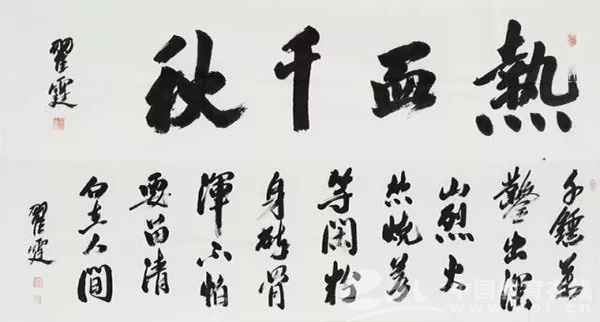 熱血千秋
翟霆
千鎚萬
鑿出深
山烈火
焚燒若
等閑粉
身碎骨
渾不怕
要留清
白在人間
翟霆
中国教育在线